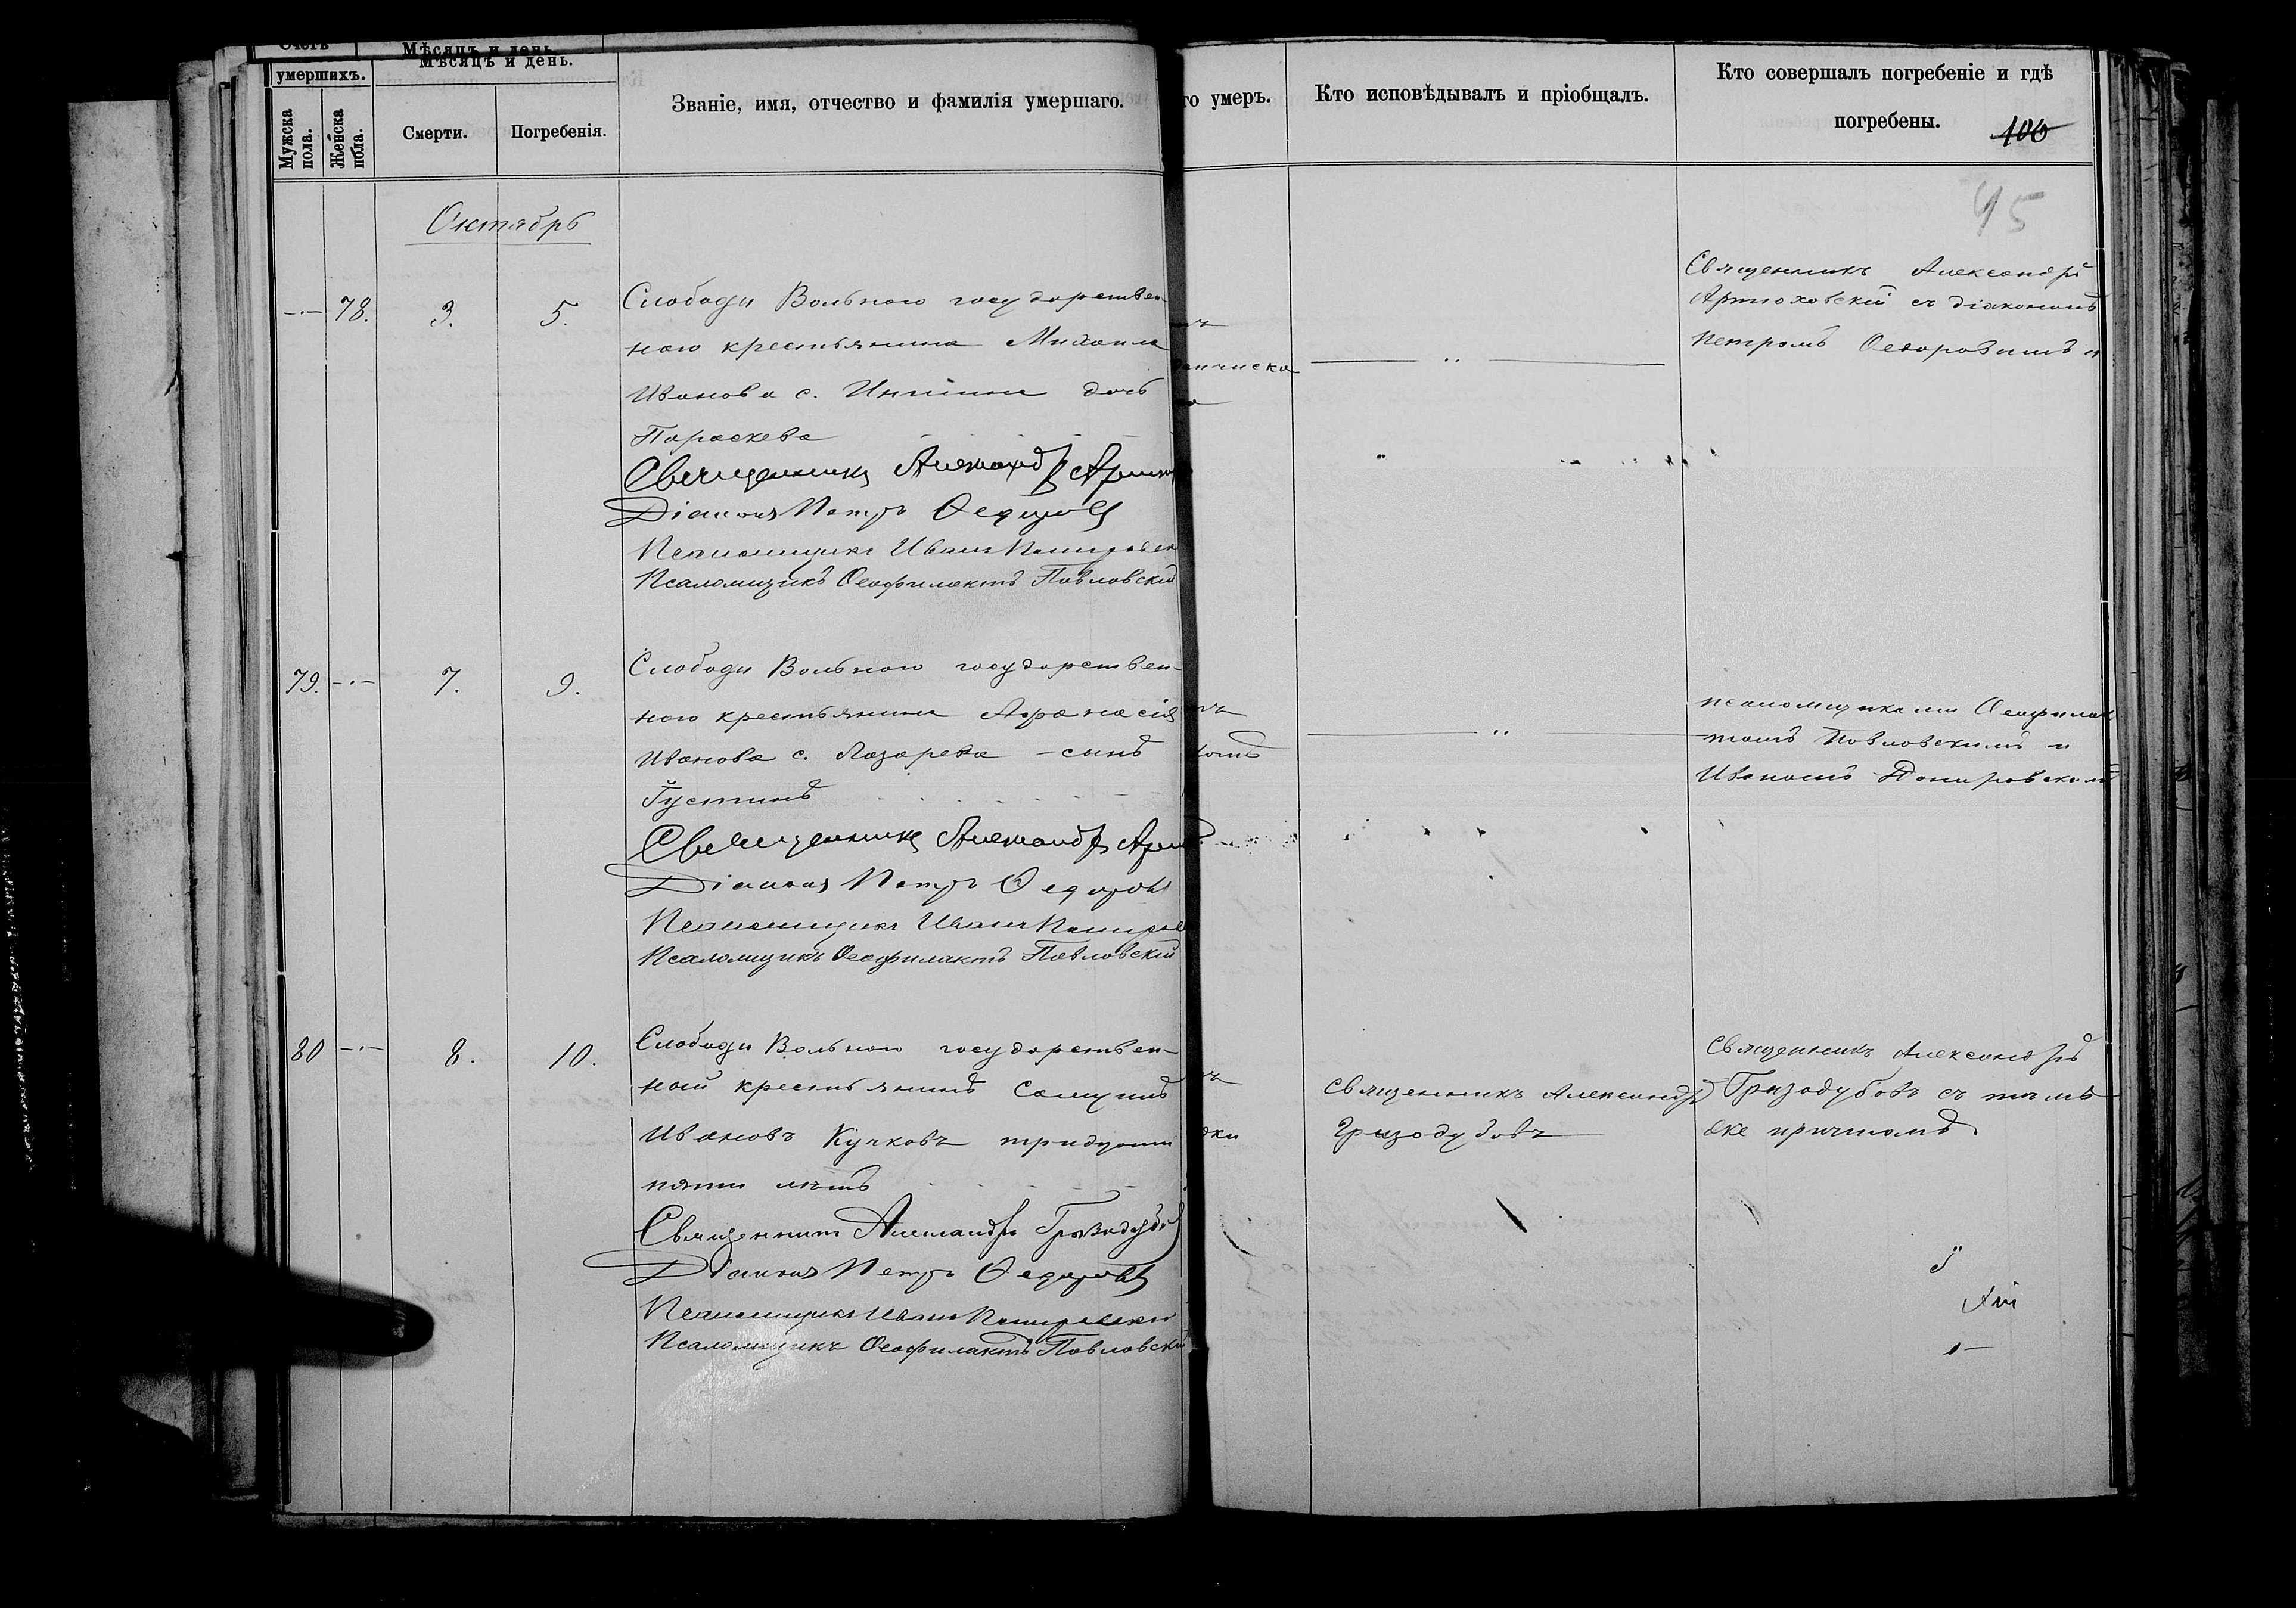 Счетъ
умершихъ.
Мѣсяцъ и день.
Мѣсяцъ и день.
Мужска пола.
Женска пола.
Смерти.
Погребенія.
Званіе, имя, отчество и фамилія умершаго.
го умеръ.
Кто исповѣдывалъ и пріобщалъ.
Кто совершалъ погребеніе и гдѣ
погребены.
106
95
Октябрь
78. 3. 5.
Слободы Вольнаго государствен-
наго крестьянина Михаила
Иванова с. дочь
Параскева
Священникъ Александръ
Діаконъ Петръ Ѳедоровъ
Псаломщикъ Иванъ
Псаломщикъ Ѳеофилактъ Павловскій
Священникъ Александръ
Артюховскій съ діакономъ
Петромъ Ѳедоровымъ и
79. 7. 9.
Слободы Вольнаго государствен-
наго крестьянина Афанасія
Иванова с. Лазарева - сынъ
Іустинъ
Священникъ Александръ
Діаконъ Петръ Ѳедоровъ
Псаломщикъ Иванъ
Псаломщикъ Ѳеофилактъ Павловскій
псаломщиками Ѳеофилак
томъ Павловскимъ и
Иваномъ
80 8. 10.
Слободы Вольнаго государствен-
ный крестьянинъ
Ивановъ Кучковъ тридцати
пяти лѣтъ
Священникъ Александръ Грызодубовъ
Діаконъ Петръ Ѳедоровъ
Псаломщикъ Иванъ
Псаломщикъ Ѳеофилактъ Павловскій
Священникъ Александръ
Грызодубовъ
Священникъ Александръ
Грызодубовъ съ тѣмъ
же причтомъ